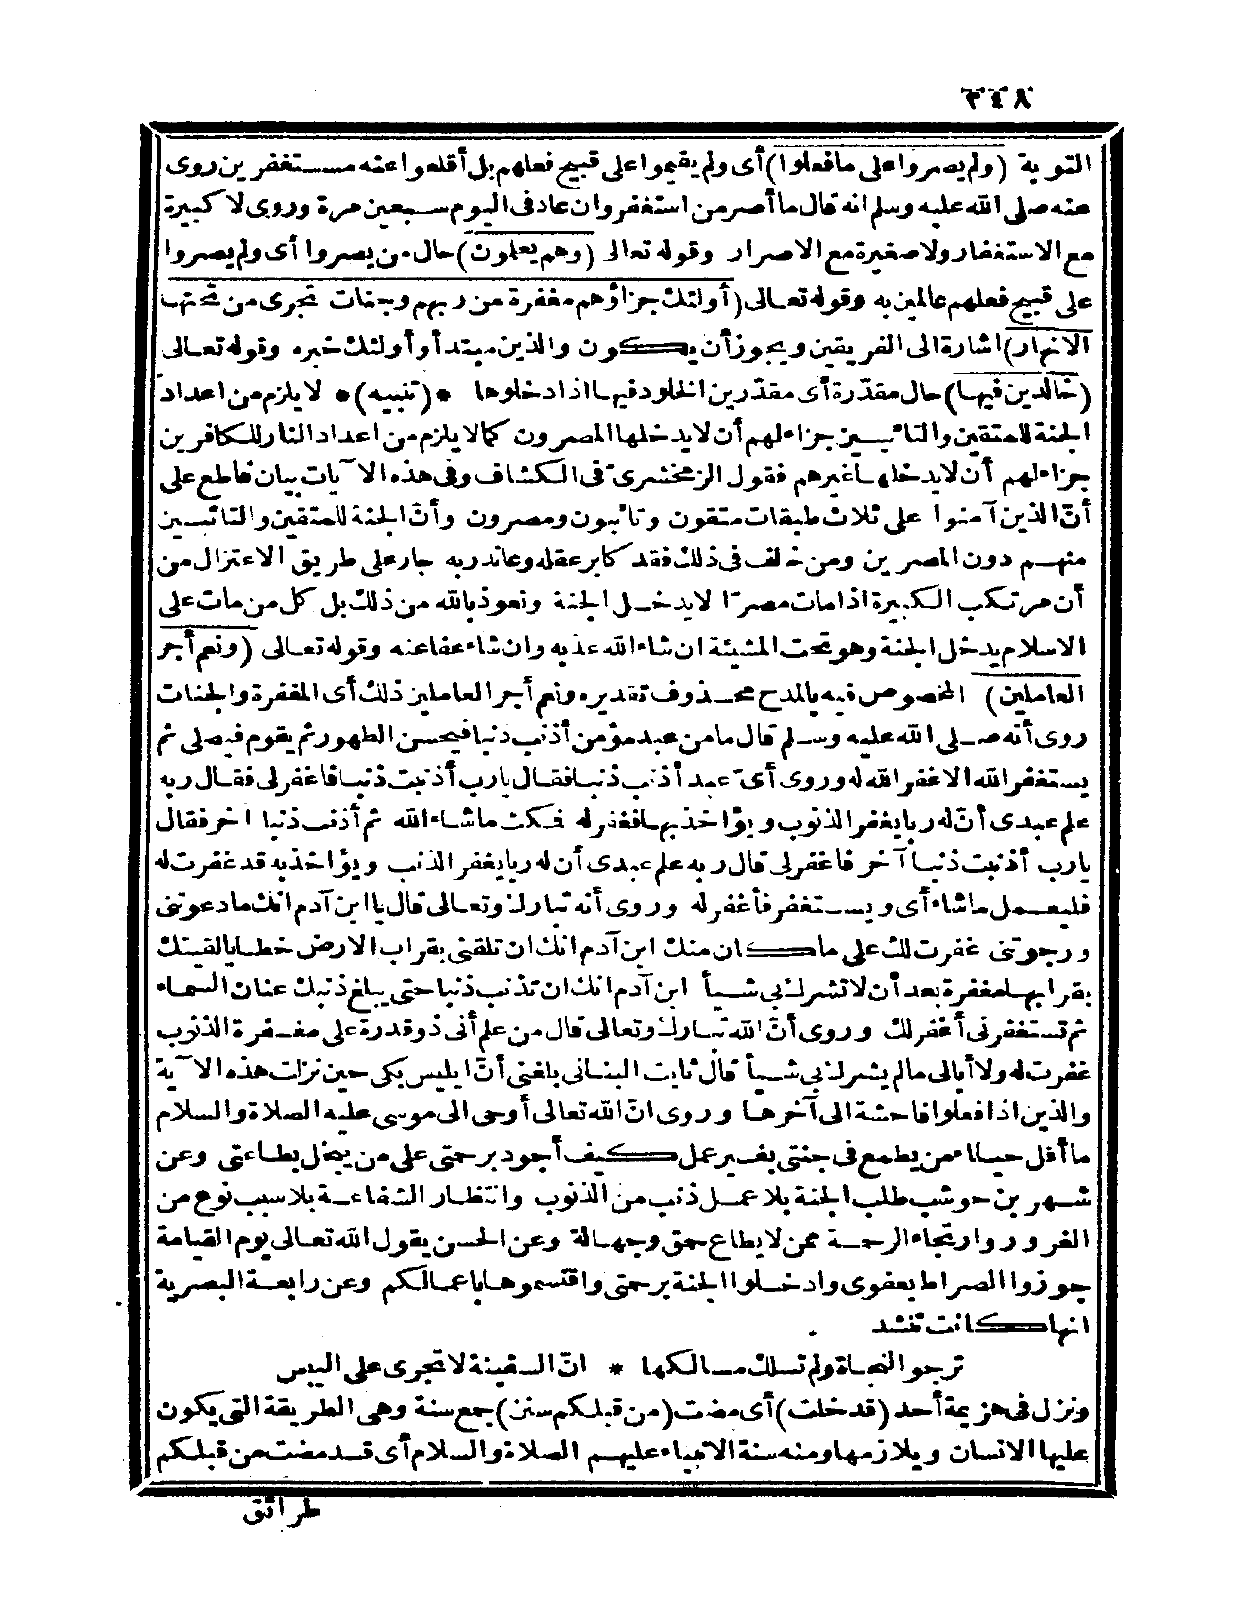 ٢٤٨
التوبة (ولم يصروا على ما فعلوا) أى ولم يقيموا على قبيح فعلهم بل أقلعوا عنه مستغفرين روى
عنه صلى الله عليه وسلم انه قال ما أصر من استغفر وان عاد فى اليوم سبعين مرة وروى لا كبيرة
مع الاستغفار ولا صغيرة مع الاصرار وقوله تعالى (وهم يعلمون) حال من يصروا أى ولم يصروا
على قبيح فعلهم عالمين به وقوله تعالى (أولئك جزاؤهم مغفرة من ربهم وجنات تجرى من تحتها
الانهار) اشارة الى الفريقين ويجوز أن يكون والذين مبتدأ وأولئك خبره وقوله تعالى
(خالدين فيها) حال مقدّرة أى مقدّرين الخلود فيها اذا دخلوها * (تنبيه) * لا يلزم من اعداد
الجنة للمتقين والتائبين جزاء لهم أن لا يدخلها المصرون كما لا يلزم من اعداد النار للكافرين
جزاء لهم أن لا يدخلها غيرهم فقول الزمخشرى فى الكشاف وفى هذه الآيات بيان قاطع على
أنّ الذين آمنوا على ثلاث طبقات متقون وتائبون ومصرون وأنّ الجنة للمتقين والتائبين
منهم دون المصرين ومن خالف فى ذلك فقد كابر عقله وعاند ربه جار على طريق الاعتزال من
أن مرتكب الكبيرة اذا مات مصرّا لا يدخل الجنة ونعوذ بالله من ذلك بل كل من مات على
الاسلام يدخل الجنة وهو تحت المشيئة ان شاء الله عذبه وان شاء عفا عنه وقوله تعالى (ونعم أجر
العاملين) المخصوص فيه بالمدح محذوف تقديره ونعم أجر العاملين ذلك أى المغفرة والجنات
روى أنه صلى الله عليه وسلم قال ما من عبد مؤمن أذنب ذنبا فيحسن الطهور ثم يقوم فيصلى ثم
يستغفر الله الا غفر الله له وروى أىّ عبد أذنب ذنبا فقال يارب أذنبت ذنبا فاغفر لى فقال ربه
علم عبدى أنّ له ربا يغفر الذنوب ويؤاخذ بها فغفر له فمكث ما شاء الله ثم أذنب ذنبا اخر فقال
يارب أذنبت ذنبا آخر فاغفر لى قال ربه علم عبدى أن له ربا يغفر الذنب ويؤاخذ به قد غفرت له
فليعمل ما شاء أى ويستغفر فأغفر له وروى أنه تبارك وتعالى قال يا ابن آدم انك ما دعوتنى
ورجوتنى غفرت لك على ما كان منك ابن آدم انك ان تلقنى بقراب الارض خطايا لقيتك
بقرابها مغفرة بعد أن لا تشرك بى شيأ ابن آدم انك ان تذنب ذنبا حتى يبلغ ذنبك عنان السماء
ثم تستغفرنى أغفر لك وروى أنّ الله تبارك وتعالى قال من علم أنى ذو قدرة على مغفرة الذنوب
غفرت له ولا أبالى ما لم يشرك بى شيأ قال ثابت البنانى بلغنى أنّ ابليس بكى حين نزلت هذه الآية
والذين اذا فعلوا فاحشة الى آخرها وروى انّ الله تعالى أوحى الى موسى عليه الصلاة والسلام
ما أقل حياء من يطمع فى جنتى بغير عمل كيف أجود برحمتى على من يبخل بطاعتى وعن
شهر بن حوشب طلب الجنة بلا عمل ذنب من الذنوب وانتظار الشفاعة بلا سبب نوع من
الغرور وارتجاء الرحمة ممن لا يطاع حمق وجهالة وعن الحسن يقول الله تعالى يوم القيامة
جوزوا الصراط بعفوى وادخلوا الجنة برحمتى واقتسموها باعمالكم وعن رابعة البصرية
انها كانت تنشد
ترجو النجاة ولم تسلك مسالكها * انّ السفينة لا تجرى على اليبس
ونزل فى هزيمة أحد (قد خلت) أى مضت (من قبلكم سنن) جمع سنة وهى الطريقة التى يكون
عليها الانسان ويلازمها ومنه سنة الانبياء عليهم الصلاة والسلام أى قد مضت من قبلكم
طرائق